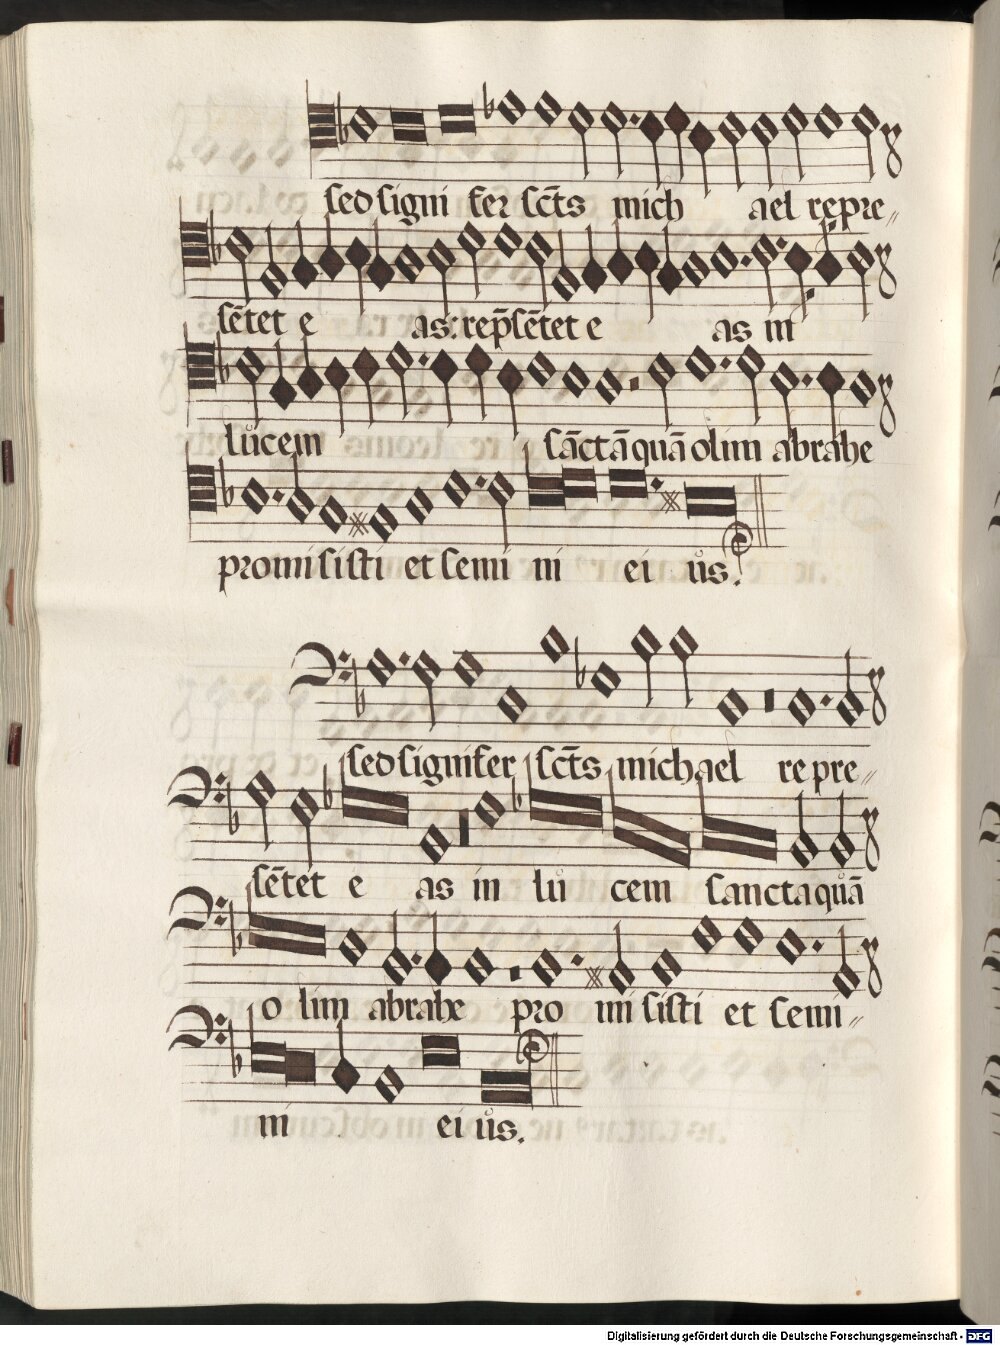 sed signi fer sc̄ts mich ael repre〃
sēt̄et e as: rep̄sēt̄et e as in
lůcem sāctā quā olim abrahe
promisisti et semi ni ei ůs.
sed signifer sc̄ts michael re pre〃
sēt̄et e as in lů cem sancta quā
o lim abrahe pro misisti et semi〃
ni ei ůs.
Digitalisierung gefördert durch die Deutsche Forschungsgemeinschaft - DFG